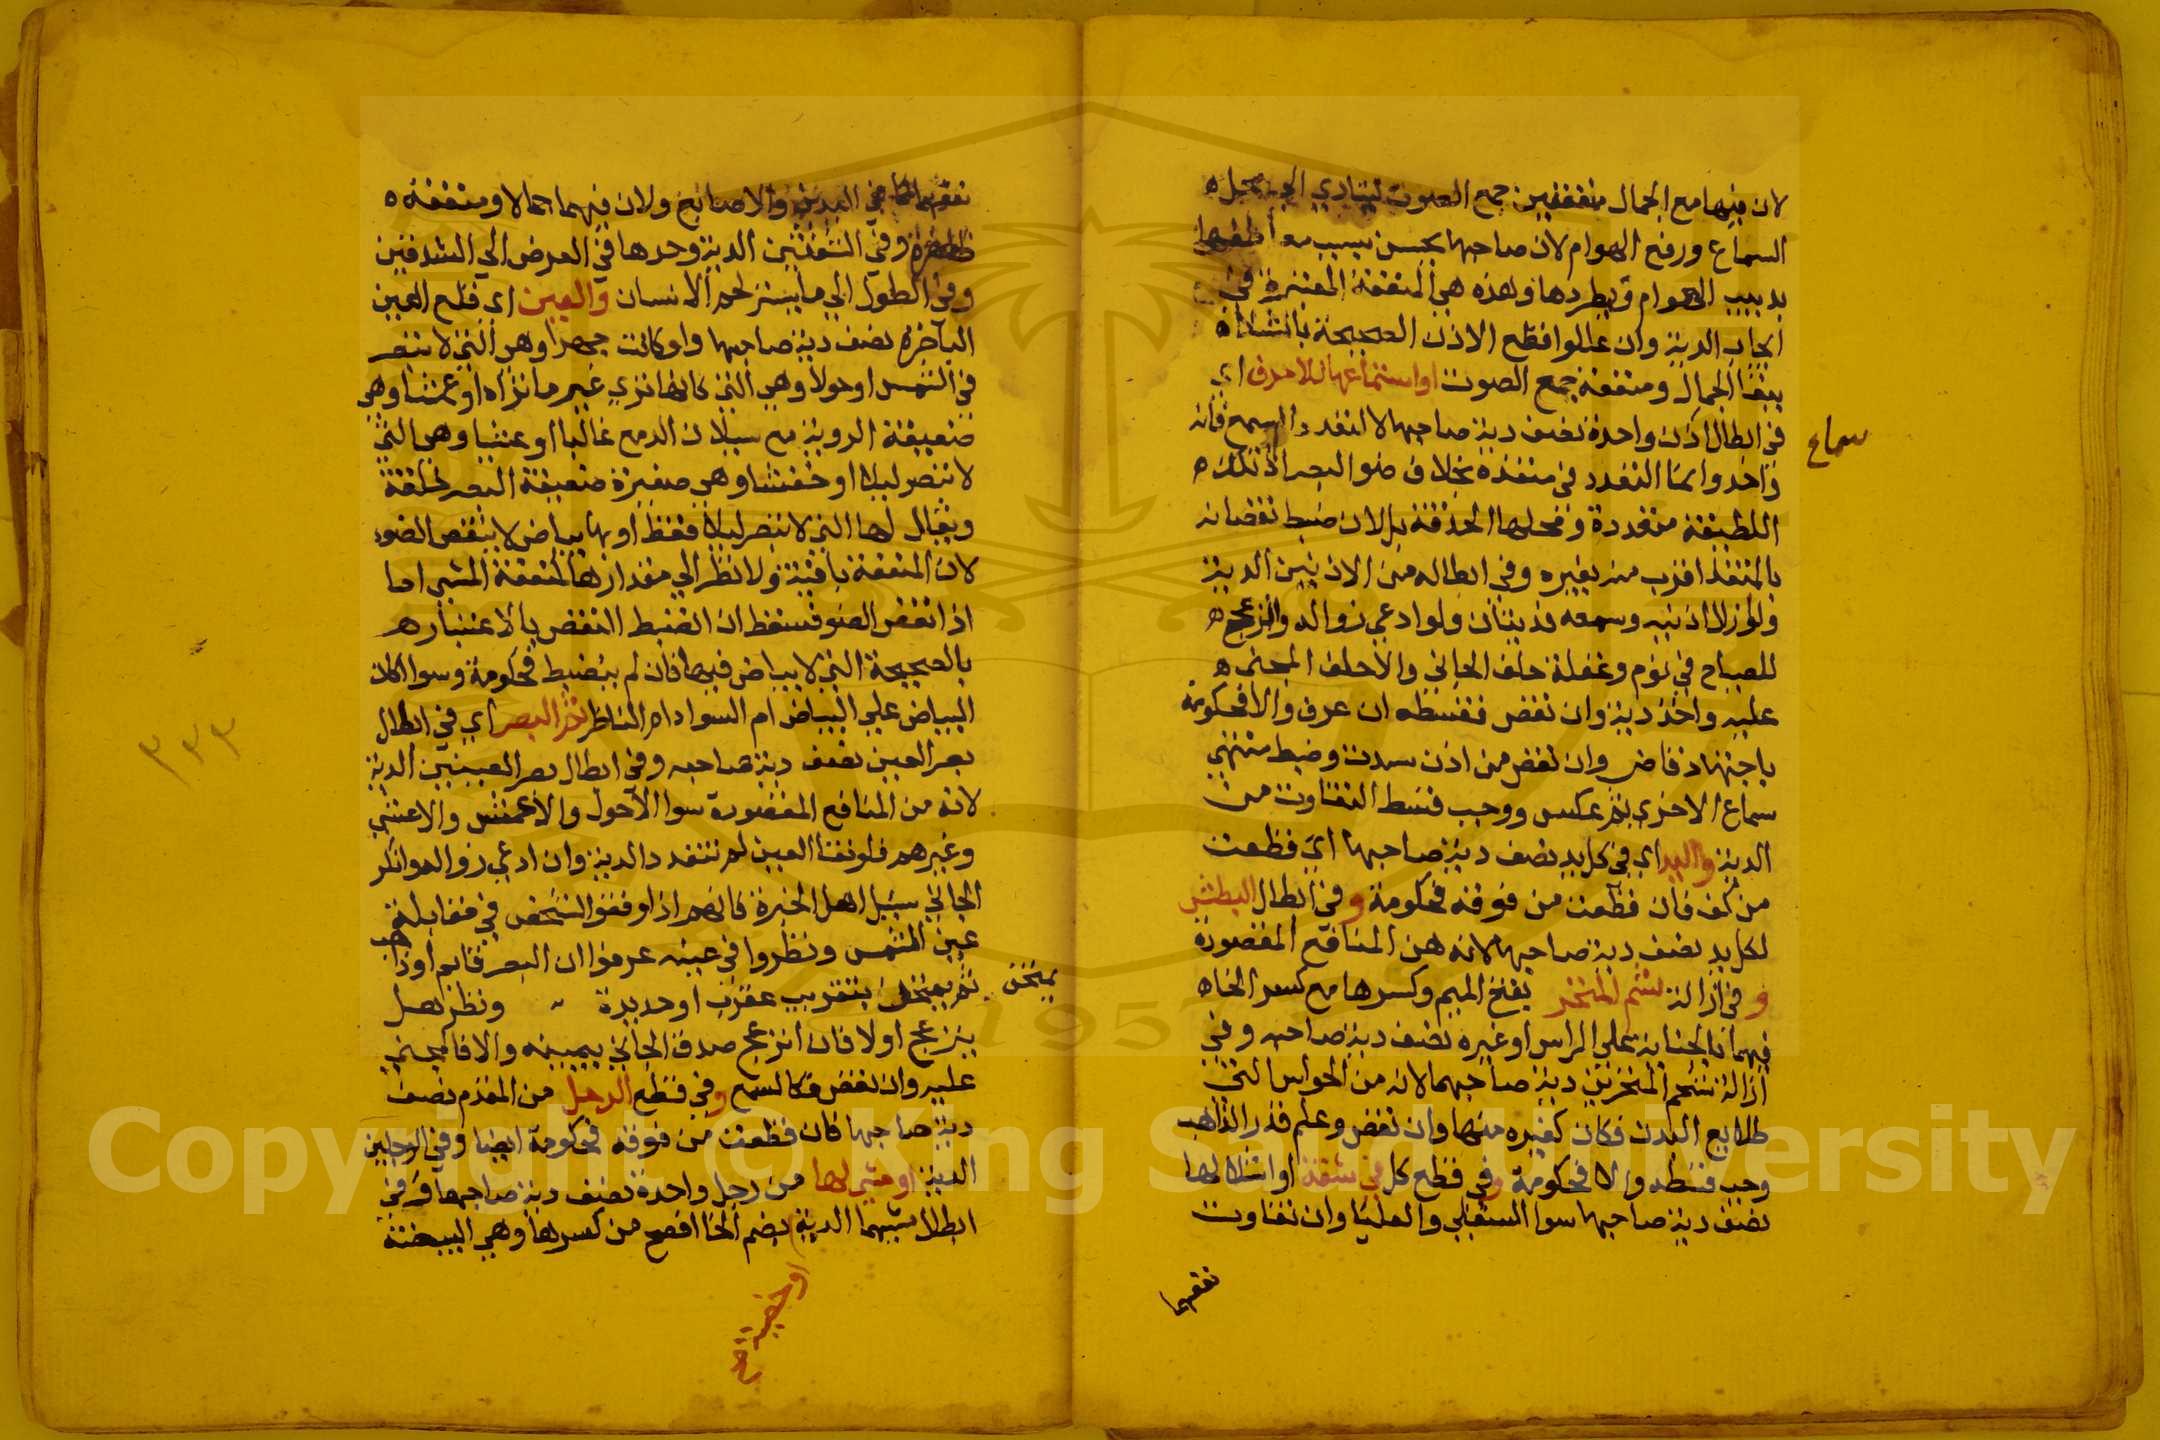 لان فيها مع الجمال منفعتين جمع الصوت ليتادي الي محل
السماع ودفع الهوام لان صاحبها يحس بسبب معاطفها
بدبيب الهوام ويطردها وهذه هي المنفعة المعتبرة في
ايجاب الدية وان عللوا قطع الاذن الصحيحة بالشلاه
ببقا الجمال ومنفعة جمع الصوت او استماعها للاحرف اي
في ابطال اذن واحدة نصف دية صاحبها لا لتعدد السمع فانه
واحد وانما التعدد في منفذه بخلاف ضو البصر اذ تلك
اللطيفة متعددة ومحلها الحدقة بل لان ضبط نقصانه
بالمنفذ اقرب منه بغيره وفي ابطاله من الاذنين الدية
ولو ازلا اذنيه وسمعه فديتان ولو ادعي زواله وانزعج
للصياح في نوم وغفلة حلف الجاني والا حلف المجني
عليه واخذ دية وان نقص فقسطه ان عرف والا فحكومة
باجتهاد قاض وان نقص من اذن سدت وضبط منتهي
سماع الاخري ثم عكس ووجب قسط التفاوت من
الدية واليد اي في كل يد نصف دية صاحبها اي قطعت
من كف فان قطعت من فوقه فحكومة وفي ابطال البطش
لكل يد نصف دية صاحبها لانه من المنافع المقصودة
وفي ازالة شم المنخر بفتح الميم وكسرها مع كسر الخاء
فيهما بالجناية علي الراس او غيره نصف دية صاحبه وفي
ازالة شم المنخرين دية صاحبهما لانه من الحواس التي
طلايع البدن فكان كغيره منها وان نقص وعلم قدر الذاهب
وجب قسطه والا فحكومة وفي قطع كل في شفة او اشلالها
نصف دية صاحبها سوا السفلي والعليا وان تفاوت
سماع
نفعهما
نفعهما كما في اليدين والاصابع ولان فيهما جمالا ومنفعة
ظاهرة وفي الشفتين الدية وحدها في العرض الي الشدقين
وفي الطول الي ما يستر لحم الاسنان والعين اي قلع العين
الباخرة نصف دية صاحبها ولو كانت جهرا وهو التي لا تبصر
في الشمس او حولا وهي التي كانها تري غير ما تراه او عمشا وهي
ضعيفة الروية مع سيلان الدمع غالبا او عشيا وهي التي
لا تبصر ليلا او خفشا وهي صغيرة ضعيفة البصر خلقة
ويقال لها التي لا تبصر ليلا فقط او بها بياض لا ينقص الضوء
لان المنفعة باقية ولا نظر الي مقدارها كمنفعة المشي اما
اذا نقص الضو فسقط ان انضبط النقص بالاعتبار
بالصحيحة التي لا بياض فيها فان لم ينضبط فحكومة وسوا اكان
البياض علي البياض ام السواد ام الناظر ثم البصر اي في ابطال
بصر العين نصف دية صاحبه وفي ابطال بصر العينين الدية
لانه من المنافع المقصودة سوا الاحول والاعمش والاعشي
وغيرهم فلو فقا العين لم تتعدد الدية وان ادعي زواله وانكر
الجاني سيل اهل الخبرة فانهم اذا وقفوا الشخص في مقابلة
عين الشمس ونظروا في عينه عرفوا ان البصر قايم او ذاهب
ثم يمتحن بتقريب عقرب او حديدة ونظر هل
ينزعج او لا فان انزعج صدق الجاني بيمينه والا فالمجني
عليه وان نقص فكالسمع وفي قطع الرجل من القدم نصف
دية صاحبها فان قطعت من فوقه فحكومة ايضا وفي الرجلين
الدية او مشي لها من رجل واحدة نصف دية صاحبها وفي
ابطال مشيهما الدية بضم الخا افصح من كسرها وهي البيضة
يمتحن
او خصية
٣٣٣